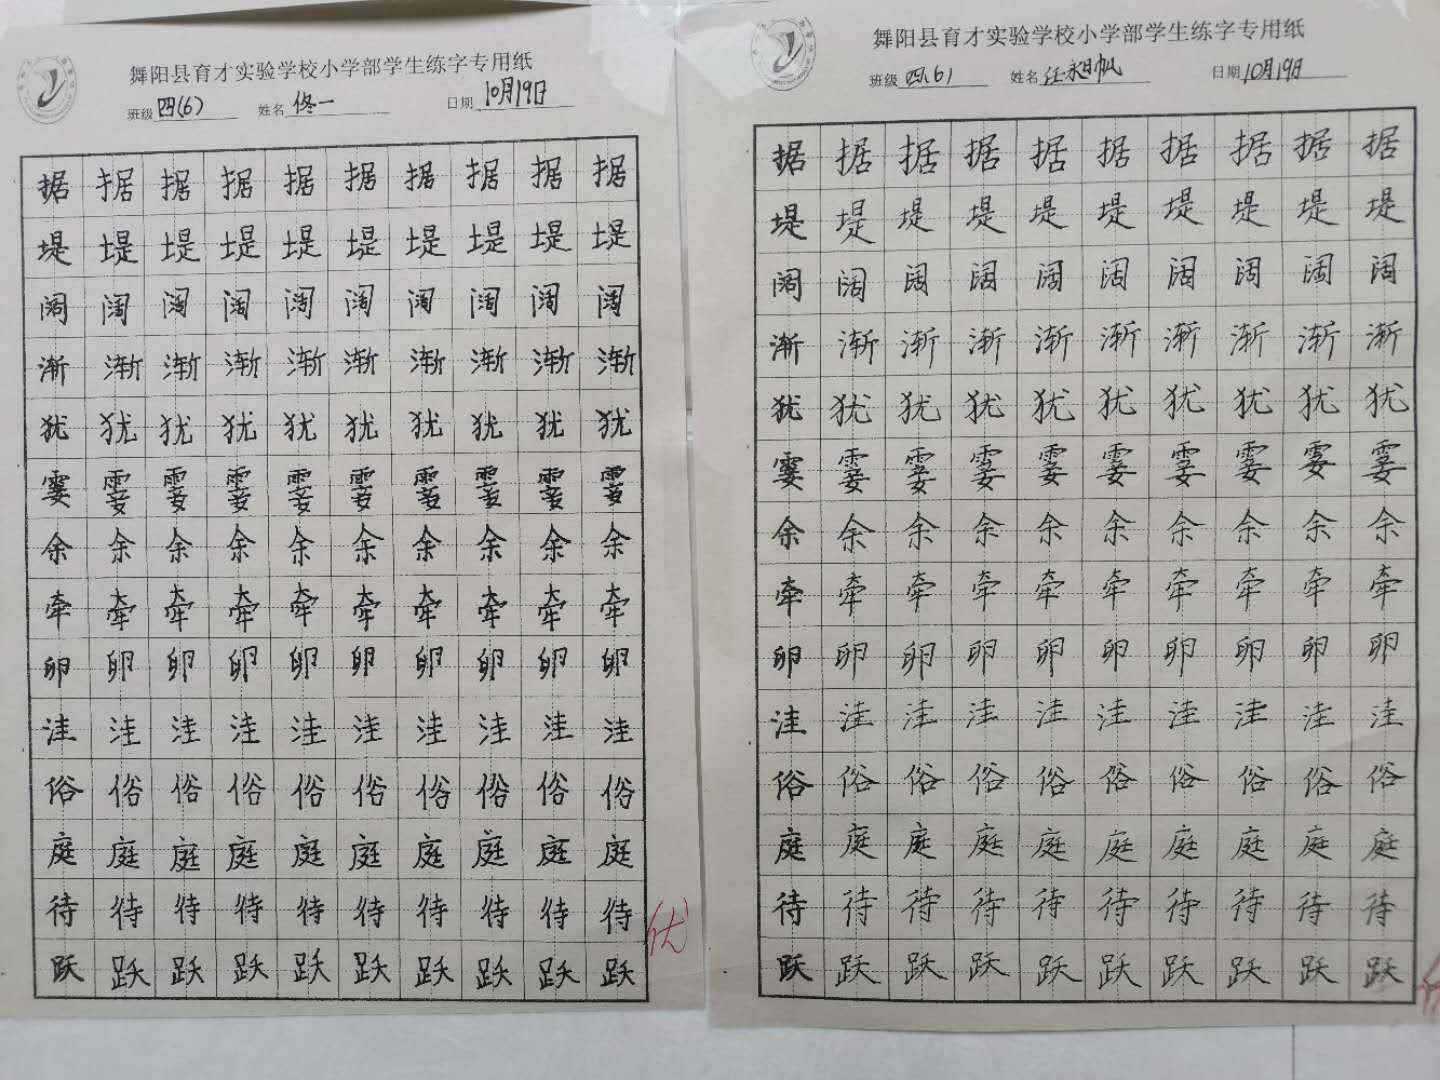 舞阳县育才实验学校小学部学生练字专用纸
班级 四(6) 姓名 佟一 日期 10月19日
据 据 据 据 据 据 据 据 据 据
堤 堤 堤 堤 堤 堤 堤 堤 堤 堤
阔 阔 阔 阔 阔 阔 阔 阔 阔 阔
渐 渐 渐 渐 渐 渐 渐 渐 渐 渐
犹 犹 犹 犹 犹 犹 犹 犹 犹 犹
霎 霎 霎 霎 霎 霎 霎 霎 霎 霎
余 余 余 余 余 余 余 余 余 余
牵 牵 牵 牵 牵 牵 牵 牵 牵 牵
卵 卵 卵 卵 卵 卵 卵 卵 卵 卵
洼 洼 洼 洼 洼 洼 洼 洼 洼 洼
俗 俗 俗 俗 俗 俗 俗 俗 俗 俗
庭 庭 庭 庭 庭 庭 庭 庭 庭 庭
待 待 待 待 待 待 待 待 待 待
跃 跃 跃 跃 跃 跃 跃 跃 跃 跃
优
舞阳县育才实验学校小学部学生练字专用纸
班级 四(6) 姓名 任 日期 10月19日
据 据 据 据 据 据 据 据 据 据
堤 堤 堤 堤 堤 堤 堤 堤 堤 堤
阔 阔 阔 阔 阔 阔 阔 阔 阔 阔
渐 渐 渐 渐 渐 渐 渐 渐 渐 渐
犹 犹 犹 犹 犹 犹 犹 犹 犹 犹
霎 霎 霎 霎 霎 霎 霎 霎 霎 霎
余 余 余 余 余 余 余 余 余 余
牵 牵 牵 牵 牵 牵 牵 牵 牵 牵
卵 卵 卵 卵 卵 卵 卵 卵 卵 卵
洼 洼 洼 洼 洼 洼 洼 洼 洼 洼
俗 俗 俗 俗 俗 俗 俗 俗 俗 俗
庭 庭 庭 庭 庭 庭 庭 庭 庭 庭
待 待 待 待 待 待 待 待 待 待
跃 跃 跃 跃 跃 跃 跃 跃 跃 跃